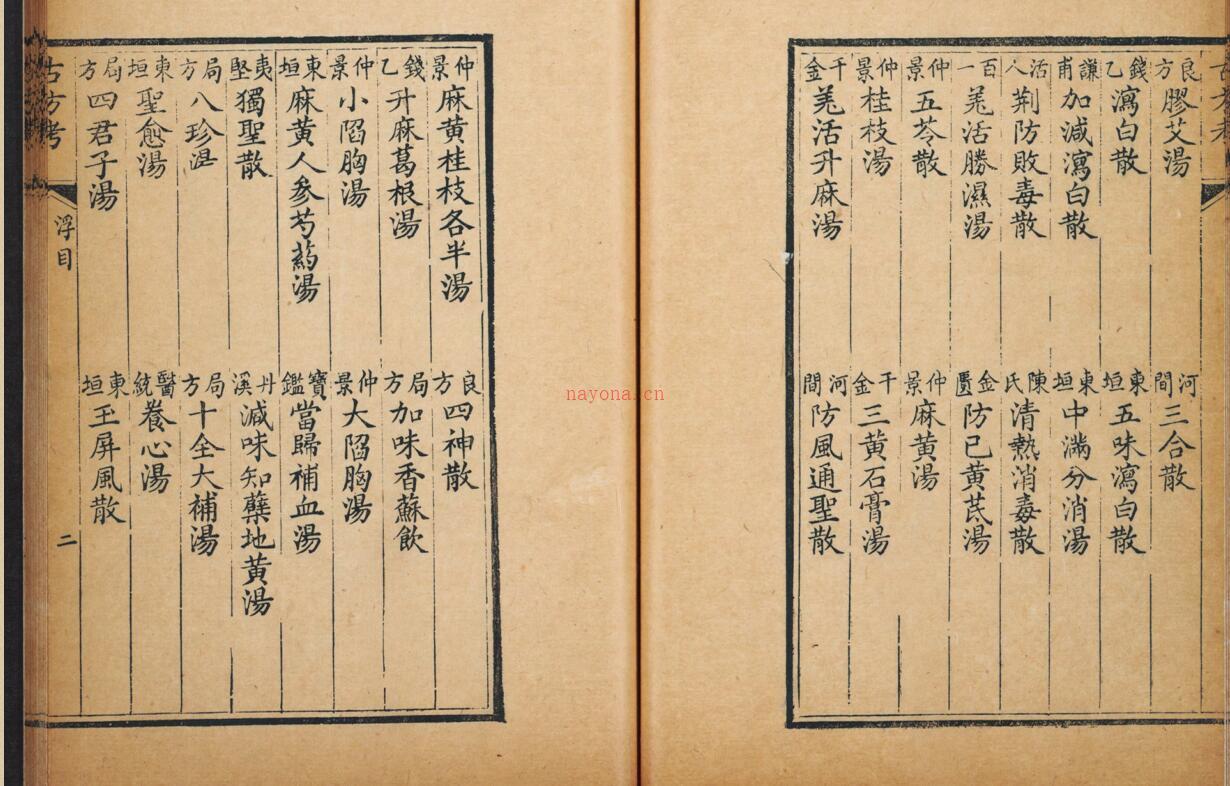 古方考
良方膠艾湯 河間三合散
錢乙瀉白散 東垣五味瀉白散
謙甫加減瀉白散 東垣中滿分消湯
活人荆防敗毒散 陳氏清熱消毒散
百一羌活勝濕湯 金匱防已黄芪湯
仲景五苓散 仲景麻黄湯
仲景桂枝湯 千金三黄石膏湯
千金羌活升麻湯 河間防風通聖散
仲景麻黄桂枝各半湯 良方四神散
錢乙升麻葛根湯 局方加味香蘇飲
仲景小陷胸湯 仲景大陷胸湯
東垣麻黄人參芍藥湯 寶鑑當歸補血湯
夷堅獨聖散 丹溪減味知蘗地黄湯
局方八珍湯 局方十全大補湯
東垣聖愈湯 醫統養心湯
局方四君子湯 東垣玉屏風散
古方考 浮目 二
nayona.cn